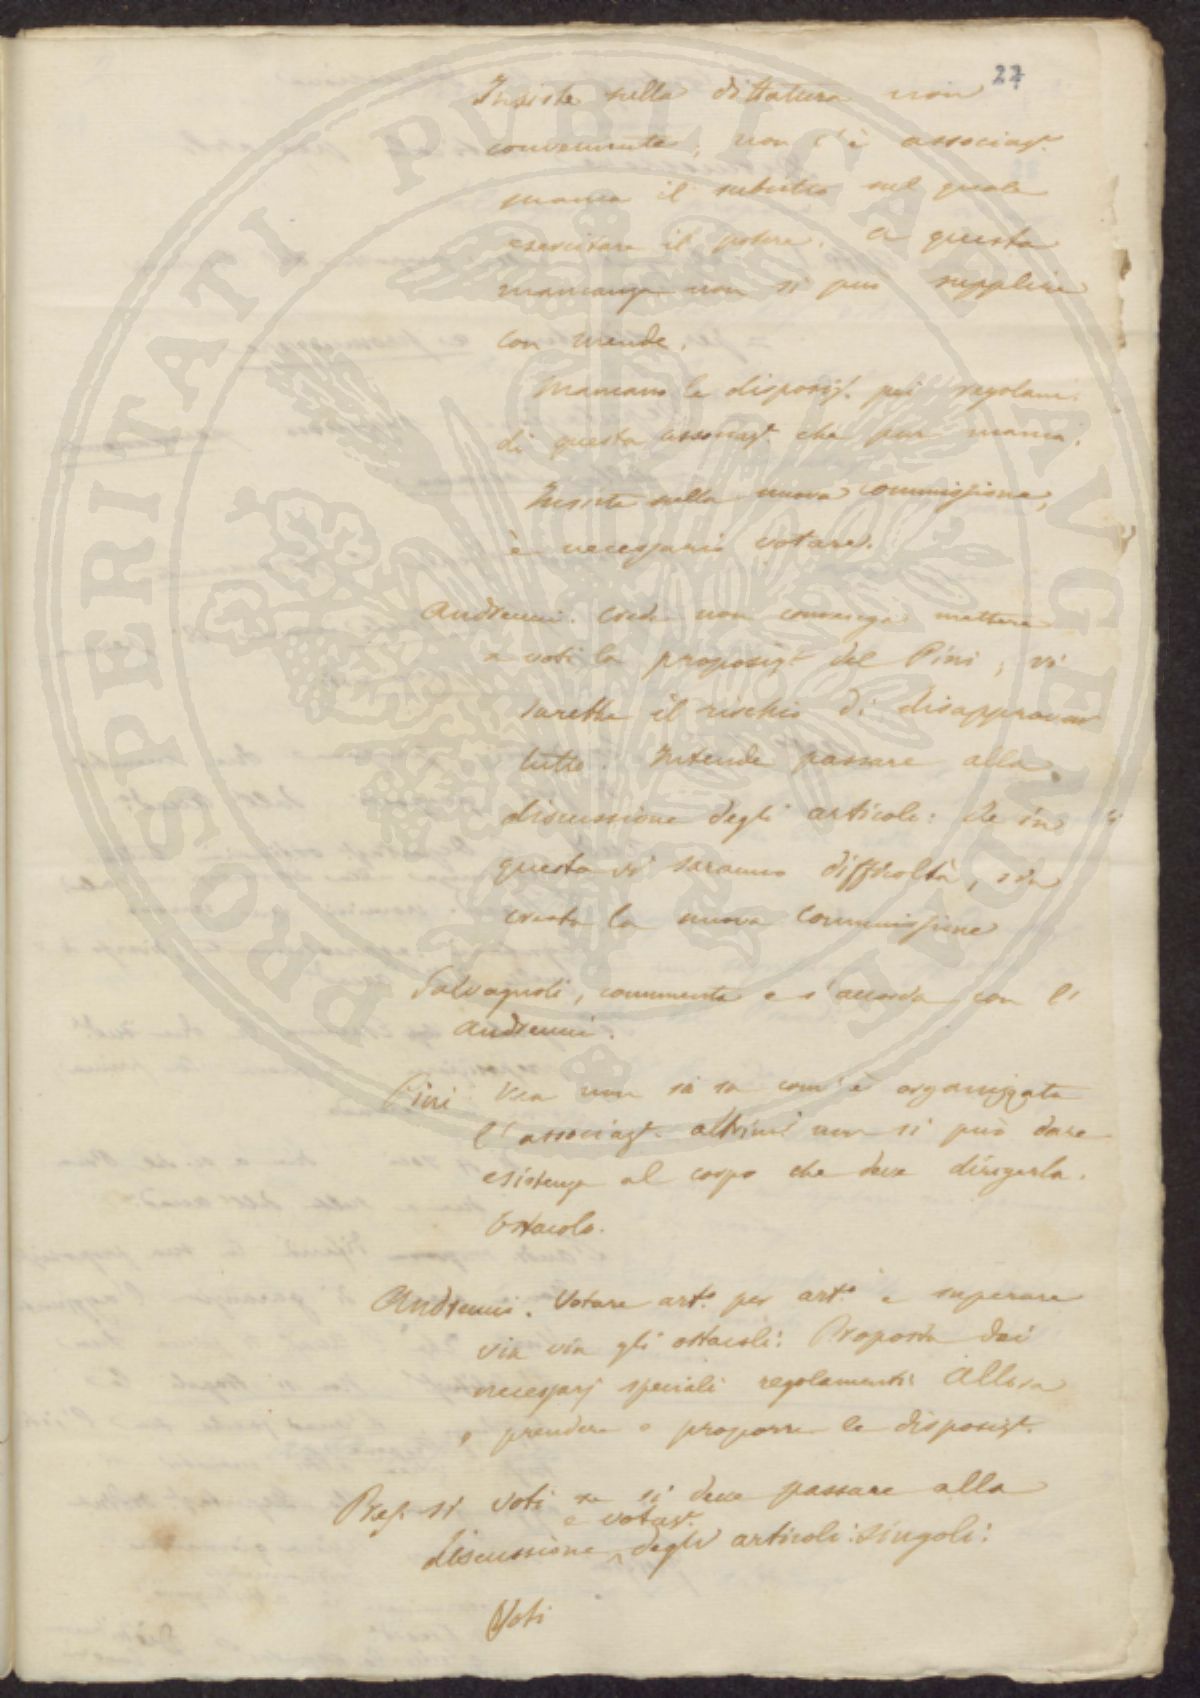 27
Insiste sulla dittatura non
conveniente, non c'è associaz.
manca il subietto sul quale
esercitare il potere. A questa
mancanza non si può supplire
con mende.
Mancano le disposiz. pei regolam.
di questa associaz. che pur manca.
Insiste sulla nuova commissione,
è necessario votare.
Andreucci. Crede non convenga mettere
a voti la proposiz. del Pini; vi
sarebbe il rischio di disapprovar
tutto. Intende passare alla
discussione degli articoli: Se in
questa vi saranno difficoltà, sia
creata la nuova Commissione
Salvagnoli, commenta e s'accorda con l'
Andreucci.
Pini. non si sa com'è organizzata
l'associaz. altrimi non si può dare
esistenza al corpo che deve dirigerla.
Ostacolo.
Andreucci. Votare art. per art. e superare
via via gli ostacoli: Proposta dei
necessarj speciali regolamenti Allora
o prendere o proporre le disposiz.
Pres. si voti se si deve passare alla
e votaz.
discussione degli articoli singoli:
Voti
PROSPERITATI PUBLICAE AVGENDAE